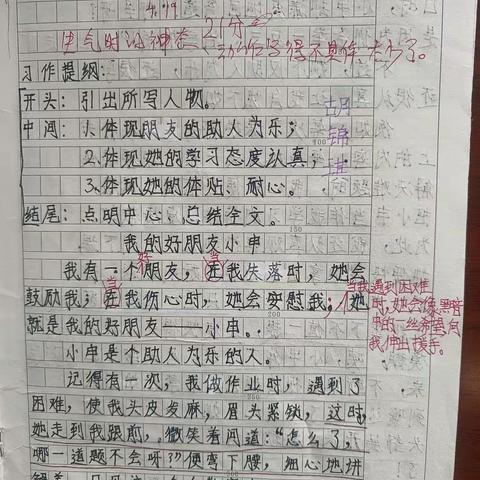 4.19
21分
生气时的神态、动作写得不具体,太少了。
习作提纲:
开头:引出所写人物。
胡锦琪
中间:1.体现朋友的助人为乐;
2.体现她的学习态度认真;
3.体现她的体贴、耐心。
结尾:点明中心,总结全文。
150
我的好朋友小申
我有一个好朋友,在我失落时,她会
当
鼓励我;在我伤心时,她会安慰我;她
当
当我遇到困难
时,她会像黑暗
中的一丝希望,向
我伸出援手。
就是我的好朋友——小申。
200
小申是个助人为乐的人。
记得有一次,我做作业时,遇到了
困难,使我头皮发麻,眉头紧锁,这时
她走到我跟前,微笑着问道:“怎么了,
哪一道题不会呀?”便弯下腰,细心地讲